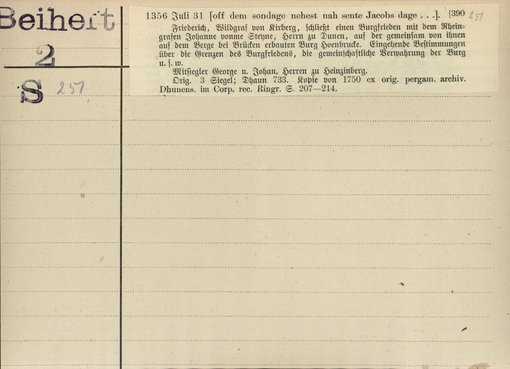 Beiheft
2
S 251
1356 Juli 31 [off dem sondage nehest nah sente Jacobs dage . . .]. [390 251
Friederich, Wildgraf von Kirberg, schließt einen Burgfrieden mit dem Rhein-
grafen Johanne vonme Steyne, Herrn zu Dunen, auf der gemeinsam von ihnen
auf dem Berge bei Brücken erbauten Burg Hoenbrucke. Eingehende Bestimmungen
über die Grenzen des Burgfriedens, die gemeinschaftliche Verwahrung der Burg
u. s. w.
Mitsiegler George u. Johan, Herren zu Heinzinberg.
Orig. 3 Siegel; Dhaun 733. Kopie von 1750 ex orig. pergam. archiv.
Dhunens. im Corp. rec. Ringr. S. 207—214.